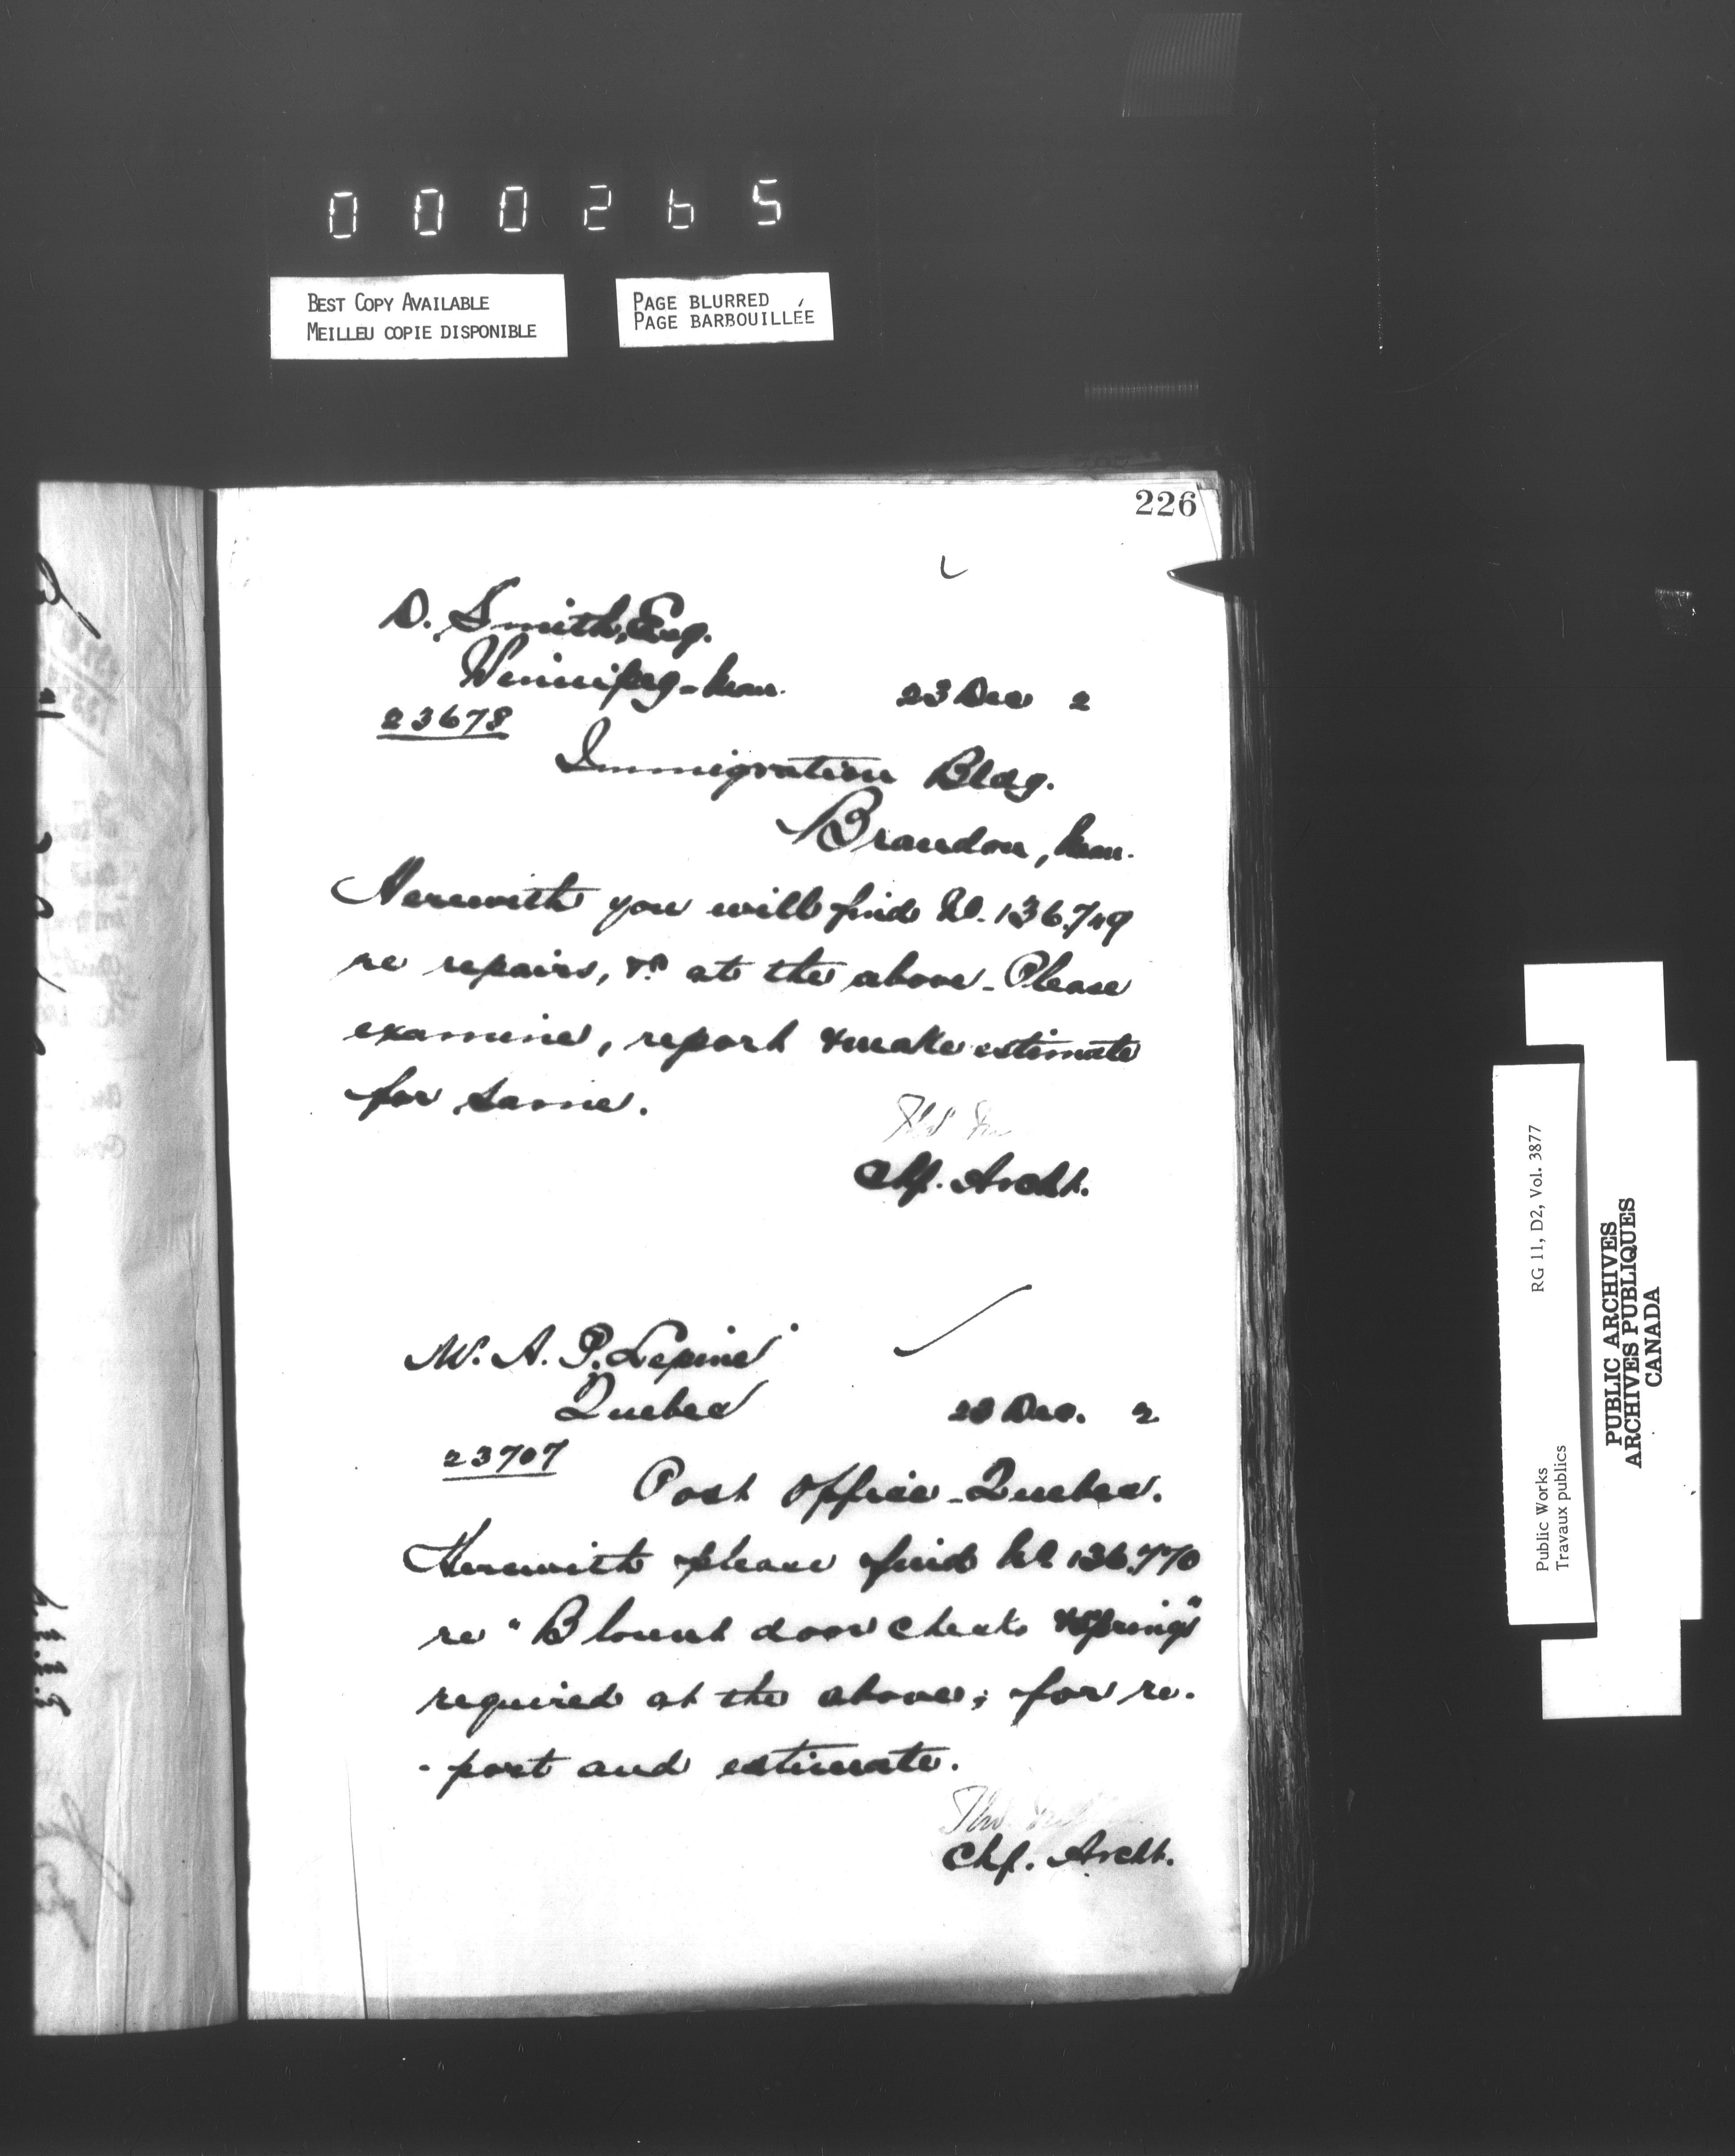 000265
BEST COPY AVAILABLE
MEILLEU COPIE DISPONIBLE
PAGE BLURRED
PAGE BARBOUILLÉE
226
D. Smith, Esq.
Winnipeg - Man.
23 Dec 2
23678
Immigration Bldg.
Brandon, Man.
Herewith you will find 136.749
re repairs, &c at the above - Please
examine, report & make estimate
for same.
Chf. Archt.
M. A. P. Lepine
Quebec
23 Dec. 2
23707
Post Office - Quebec.
Herewith please find 136.770
re "Blount door checks & Springs"
required at the above; for re-
- port and estimate.
Chf. Archt.
RG 11, D2, Vol. 3877
Public Works
Travaux publics
PUBLIC ARCHIVES
ARCHIVES PUBLIQUES
CANADA